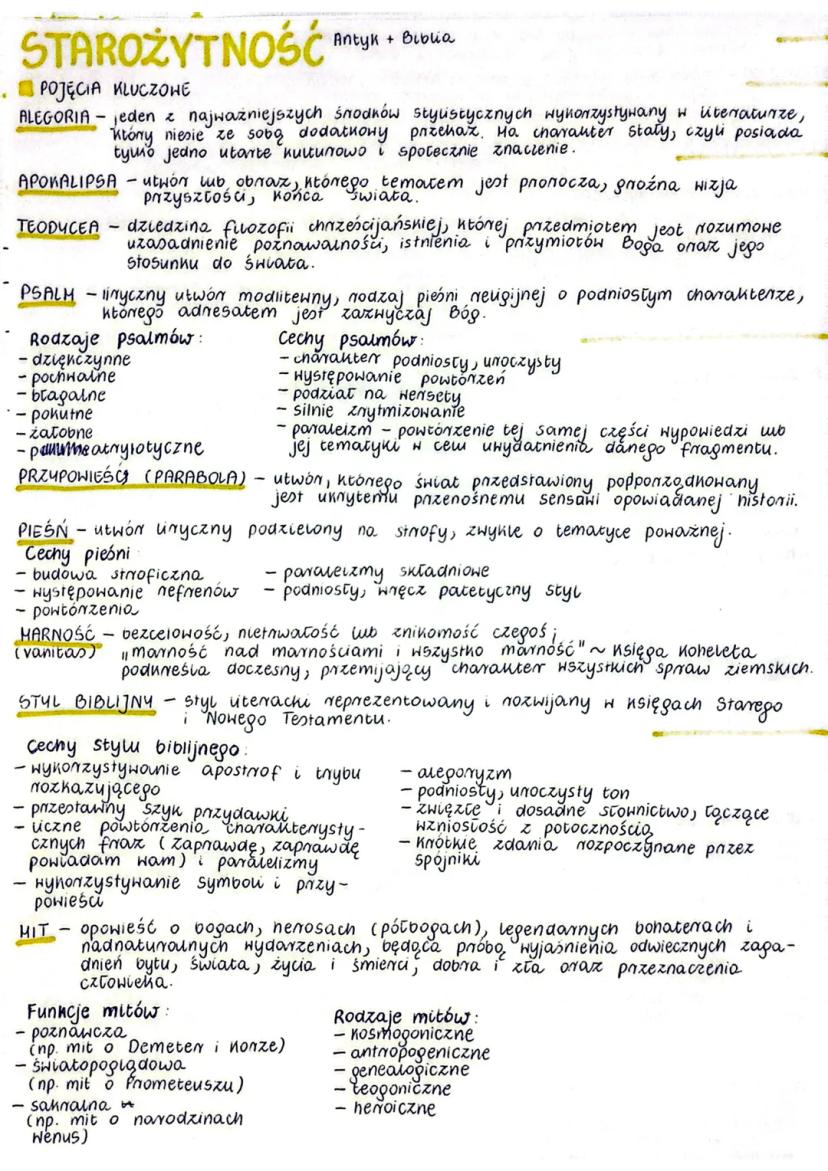 STAROŻYTNOŚĆ Antyk + Biblia
POJĘCIA KLUCZOWE
ALEGORIA – jeden z najważniejszych środków stylistycznych wykorzystywany w literaturze,
który niesie ze sobą dodatkowy przekaz. Ma charakter stały, czyli posiada
tylko jedno utarte kulturowo i społecznie znaczenie.
APOKALIPSA – utwór lub obraz, którego tematem jest prorocza, groźna wizja
przyszłości, końca świata.
TEODYCEA – dziedzina filozofii chrześcijańskiej, której przedmiotem jest rozumowe
uzasadnienie poznawalności, istnienia i przymiotów Boga oraz jego
stosunku do świata.
PSALM – liryczny utwór modlitewny, rodzaj pieśni religijnej o podniosłym charakterze,
którego adresatem jest zazwyczaj Bóg.
Rodzaje psalmów:
– dziękczynne
– pochwalne
– błagalne
– pokutne
– żałobne
– patriotyczne
Cechy psalmów:
– charakter podniosły, uroczysty
– występowanie powtórzeń
– podział na wersety
– silnie zrytmizowanie
– paralelizm – powtórzenie tej samej części wypowiedzi lub
jej tematyki w celu uwydatnienia danego fragmentu.
PRZYPOWIEŚĆ (PARABOLA) – utwór, którego świat przedstawiony podporządkowany
jest ukrytemu przenośnemu sensowi opowiadanej historii.
PIEŚŃ – utwór liryczny podzielony na strofy, zwykle o tematyce poważnej.
Cechy pieśni
– budowa stroficzna
– występowanie refrenów
– powtórzenia
– paralelizmy składniowe
– podniosły, wręcz patetyczny styl
MARNOŚĆ – bezcelowość, nietrwałość lub znikomość czegoś;
(vanitas) „marność nad marnościami i wszystko marność" ~ Księga Koheleta
podkreśla doczesny, przemijający charakter wszystkich spraw ziemskich.
STYL BIBLIJNY – styl literacki reprezentowany i rozwijany w księgach Starego
i Nowego Testamentu.
Cechy stylu biblijnego:
– wykorzystywanie apostrof i trybu
rozkazującego
– przestawny szyk przydawki
– liczne powtórzenia charakterysty-
cznych fraz (zaprawdę, zaprawdę
powiadam wam) i paralelizmy
– wykorzystywanie symboli i przy-
powieści
– alegoryzm
– podniosły, uroczysty ton
– zwięzłe i dosadne słownictwo, łączące
wzniosłość z potocznością
– krótkie zdania rozpoczynane przez
spójniki
MIT – opowieść o bogach, herosach (półbogach), legendarnych bohaterach i
nadnaturalnych wydarzeniach, będąca próbą wyjaśnienia odwiecznych zaga-
dnień bytu, świata, życia i śmierci, dobra i zła oraz przeznaczenia
człowieka.
Funkcje mitów:
– poznawcza
(np. mit o Demeter i Korze)
– światopoglądowa
(np. mit o Prometeuszu)
– sakralna
(np. mit o narodzinach
Wenus)
Rodzaje mitów:
– kosmogoniczne
– antropogeniczne
– genealogiczne
– teogoniczne
– heroiczne